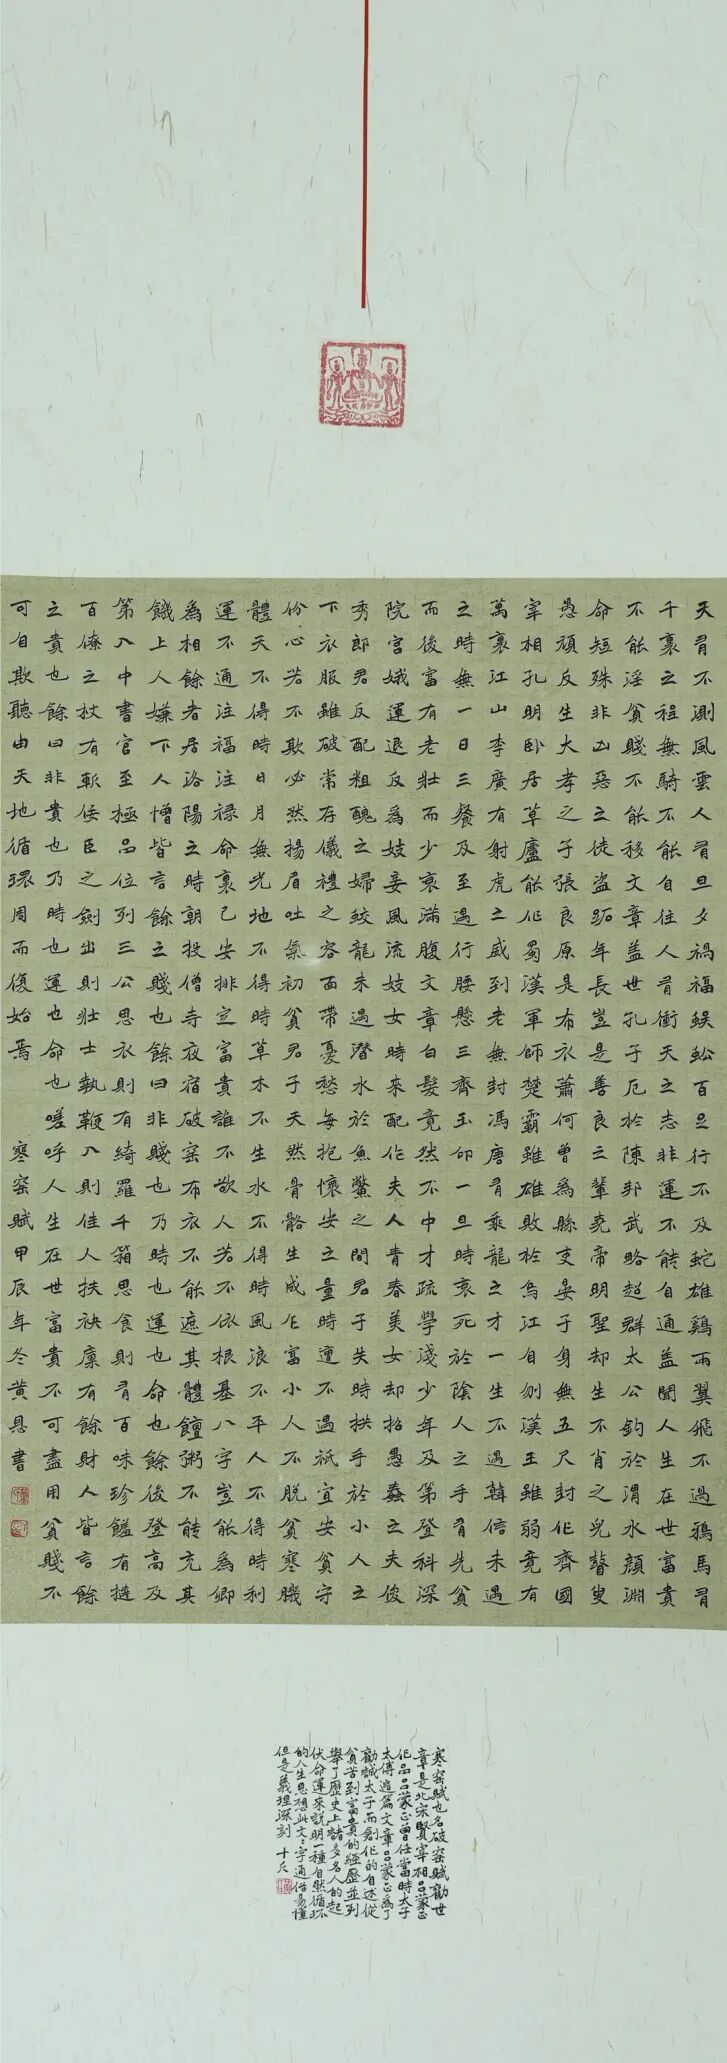 天有不測風雲人有旦夕禍福蜈蚣百足行不及蛇雄鷄兩翼飛不過鴉馬有
千裏之程無騎不能自往人有衝天之志非運不能自通蓋聞人生在世富貴
不能淫貧賤不能移文章蓋世孔子厄於陳邦武略超群太公釣於渭水顏淵
命短殊非凶惡之徒盜跖年長豈是善良之輩堯帝明聖却生不肖之兒瞽叟
愚頑反生大孝之子張良原是布衣蕭何曾為縣吏晏子身無五尺封作齊國
宰相孔明卧居草廬能作蜀漢軍師楚霸雖雄敗於烏江自刎漢王雖弱竟有
萬裏江山李廣有射虎之威到老無封馮唐有乘龍之才一生不遇韓信未遇
之時無一日三餐及至遇行腰懸三齊玉印一旦時衰死於陰人之手有先貧
而後富有老壯而少衰滿腹文章白髮竟然不中才疏學淺少年及第登科深
院宮娥運退反為妓妾風流妓女時來配作夫人青春美女却招愚蠢之夫俊
秀郎君反配粗醜之婦絞龍未遇潜水於魚鱉之間君子失時拱手於小人之
下衣服雖破常存儀禮之容面帶憂愁每抱懷安之量時遭不遇祇宜安貧守
份心若不欺必然揚眉吐氣初貧君子天然骨骼生成乍富小人不脱貧寒肌
體天不得時日月無光地不得時草木不生水不得時風浪不平人不得時利
運不通注福注禄命裏已安排定富貴誰不欲人若不依根基八字豈能為卿
為相餘者居洛陽之時朝投僧寺夜宿破窑布衣不能遮其體饘粥不能充其
饑上人嫌下人憎皆言餘之賤也餘曰非賤也乃時也運也命也餘後登高及
第入中書官至極品位列三公思衣則有綺羅千箱思食則有百味珍饈有撻
百僚之杖有斬佞臣之劍出則壯士執鞭入則佳人扶袂廩有餘財人皆言餘
之貴也餘曰非貴也乃時也運也命也嗟呼人生在世富貴不可盡用貧賤不
可自欺聽由天地循環周而復始焉 寒窑賦甲辰年冬黄恩書
寒窑賦也名破窑賦勸世
章是北宋賢宰相吕蒙正
作品吕蒙正曾任當時太子
太傅這篇文章吕蒙正為了
勸誡太子而創作的自述從
貧苦到富貴的經歷並列
舉了歷史上諸多名人的起
伏命運來説明一種自然循环
的人生思想此文文字通俗易懂
但是義理深刻 十尺